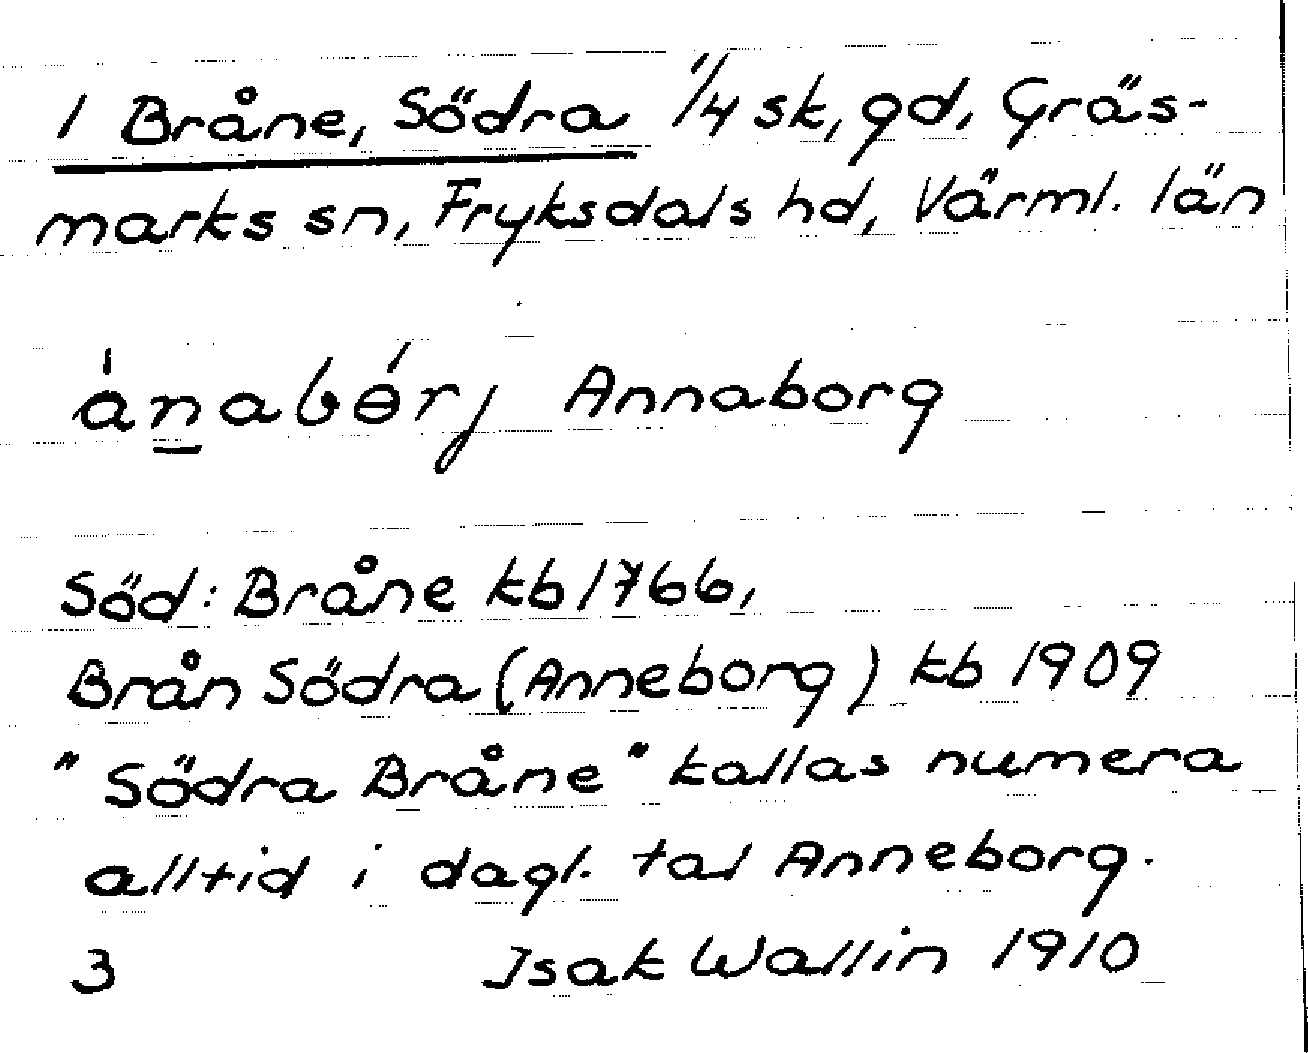 1 Bråne, Södra 1/4 sk, gd, Gräs-
marks sn, Fryksdals hd, Värml. län
ánabɵ́rj Annaborg
Söd: Bråne kb 1766,
Brån Södra (Anneborg) kb 1909
"Södra Bråne" kallas numera
alltid i dagl. tal Anneborg.
3 Isak Wallin 1910